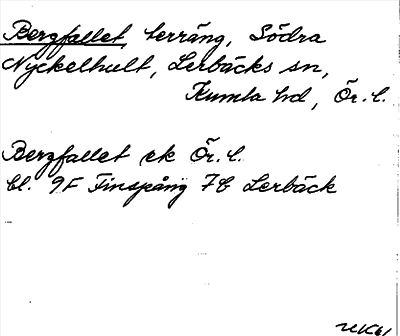 Bergfallet, terräng, Södra
Nyckelhult, Lerbäcks sn,
Kumla hd, Ör. l.
Bergfallet ek Ör. l.
bl. 9F Finspång 7E Lerbäck